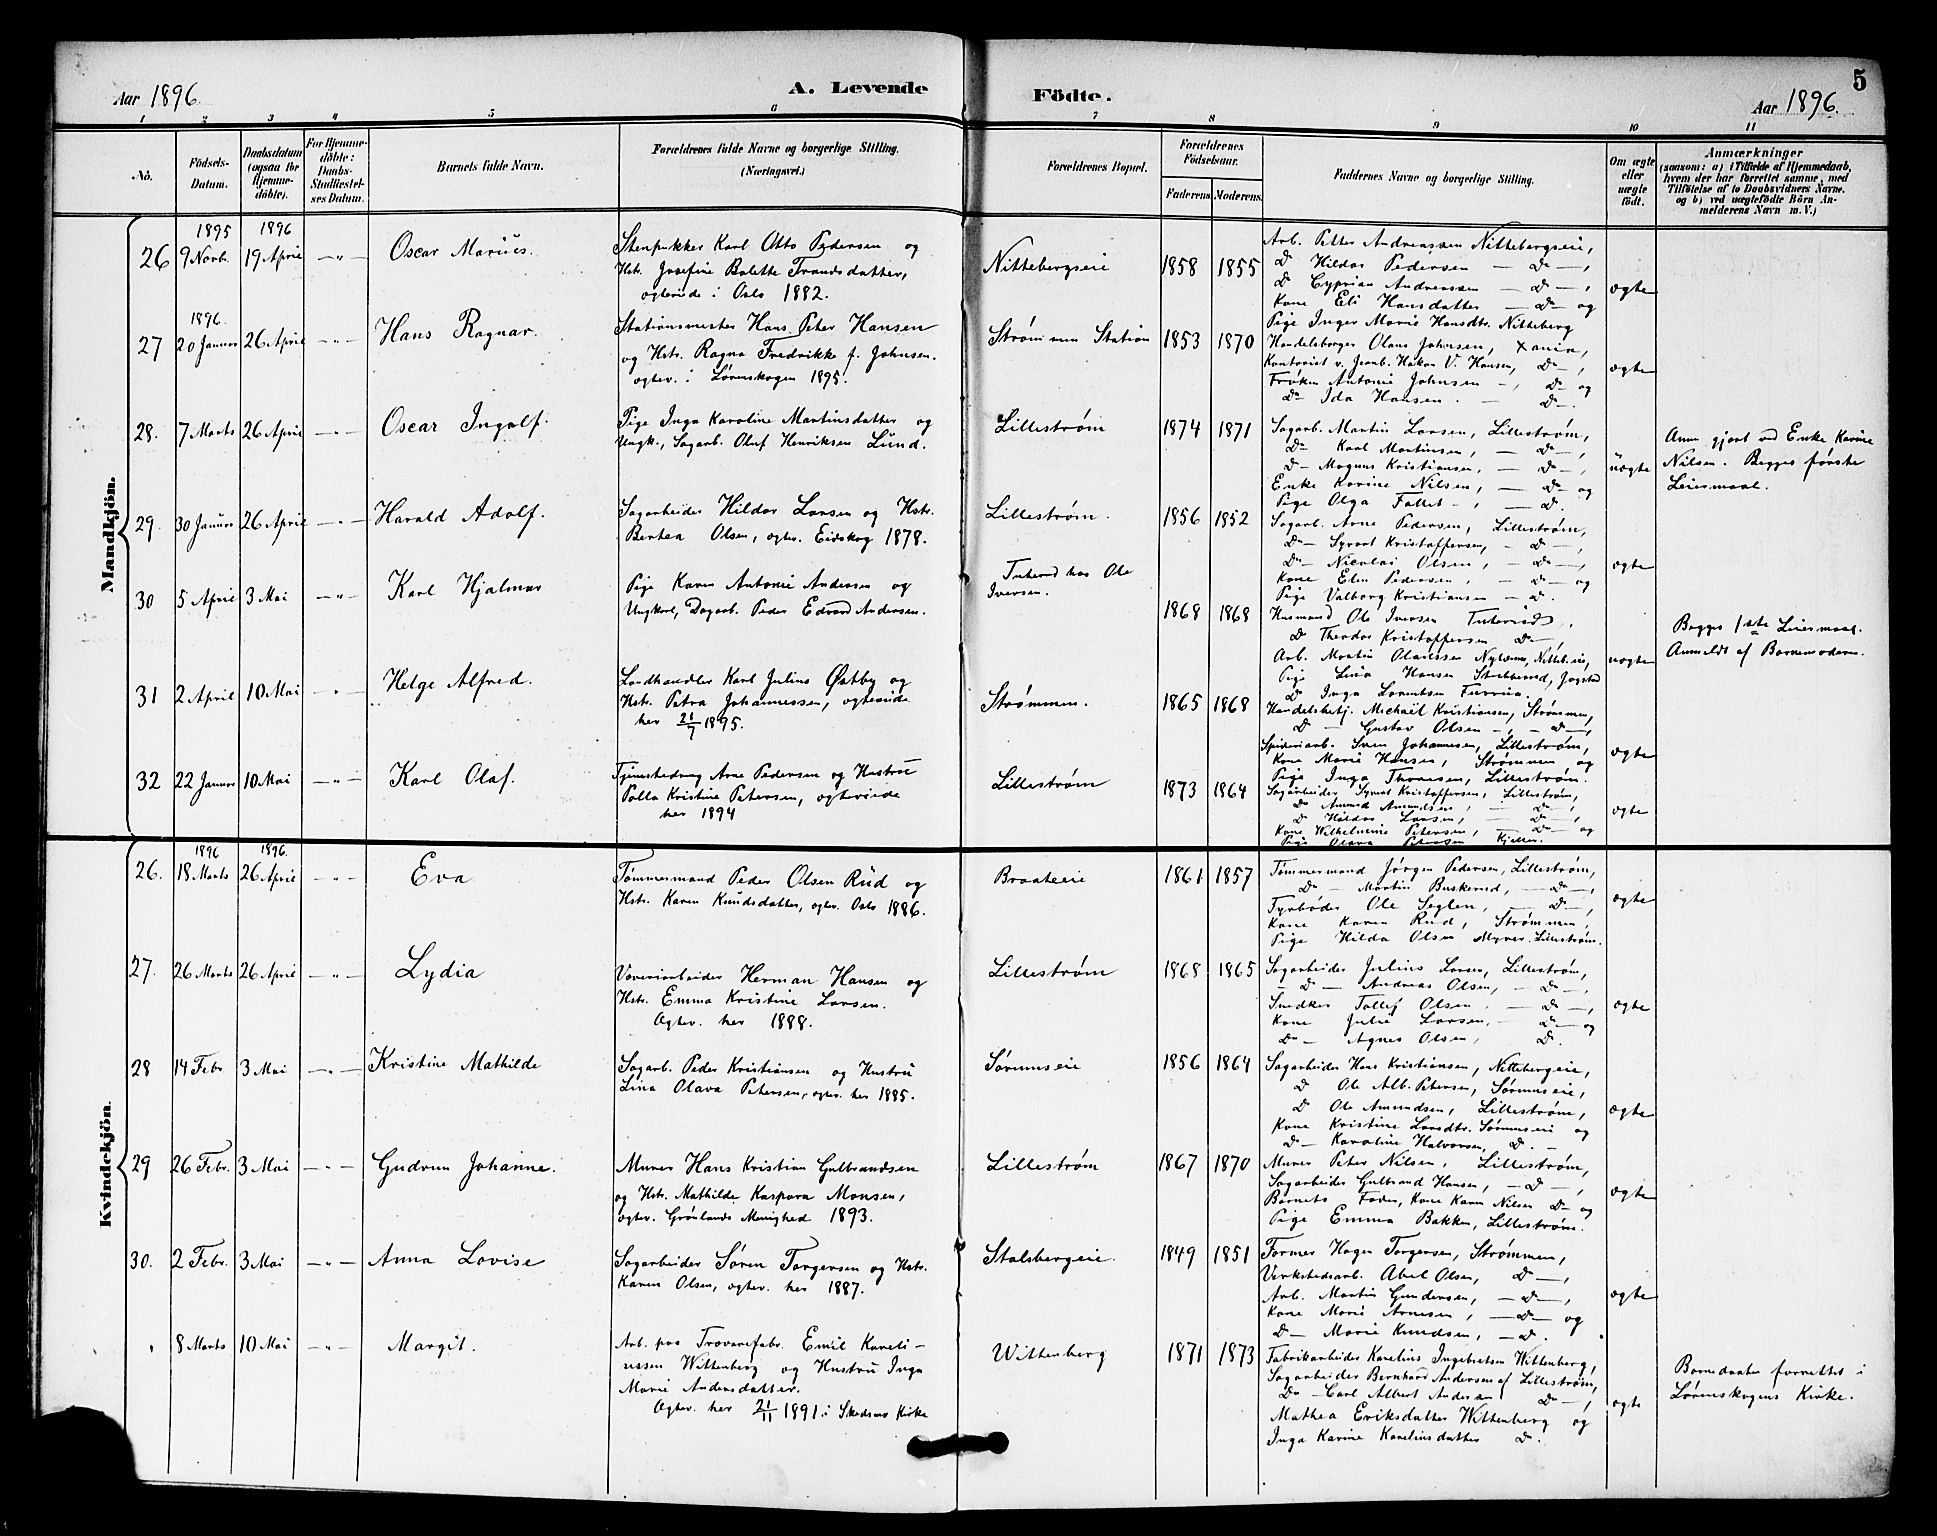 Aar 1896.
A. Levende
Födte.
5
Aar 1896.
1 2 3 4 5 6 7 8 9 10 11
No.
Födsels-Datum.
Daabsdatum (ogsaa for Hjemme-döbte).
For Hjemme-döbte: Daabs-Stadfæstel-ses Datum.
Barnets fulde Navn.
Forældrenes fulde Navne og borgerlige Stilling.
(Næringsvei.)
Forældrenes Bopæl.
Forældrenes Födselsaar.
Faderens. Moderens.
Faddernes Navne og borgerlige Stilling.
Om ægte eller uægte födt.
Anmærkninger
(saasom: a) i Tilfælde af Hjemmedaab, hvem der har forrettet samme, med Tilföielse af to Daabsvidners Navne, og b) ved uægtefödte Börn Anmelderens Navn m. V.)
Mandkjön.
26 1895 9 Novb. 1896 19 April — „ — Oscar Marius
Stenpukker Karl Otto Pedersen og
Hstr. Josefine Bolette Trondsdatter,
ægtevide i Oslo 1882.
Nittebergseie 1858 1855
Arb. Petter Andreassen Nittebergseie,
Do Hildar Pedersen — Do —,
Do Cyprian Andreassen — Do —,
Kone Eli Hansdatter — Do — og
Pige Inger Marie Hansdtr. Nitteberg
ægte
27 1896. 20 Januar 26 April — „ — Hans Ragnar.
Stationsmester Hans Peter Hansen
og Hstr. Ragna Fredrikke f. Johnsen.
ægtev. i Lørenskogen 1895.
Strømmen Station 1853 1870
Handelsborger Olaus Johnsen, Xania,
Kontorist v. Jernb. Håkon V. Hansen, Do —,
Frøken Antonie Johnsen —, Do og
Do Ida Hansen. — Do —.
ægte
28. 7 Marts 26 April — „ — Oscar Ingolf.
Pige Inga Karoline Martinsdatter og
Ungk., Sagarb. Oluf Henriksen Lund.
Lillestrøm 1874 1871
Sagarb. Martin Larsen, Lillestrøm,
Do — Karl Martinsen, — Do —,
Do — Magnus Kristiansen, — Do —,
Enke Karine Nilsen, — Do — og
Pige Olga Follet —, — Do.
uægte
Anm gjort ved Enke Karine
Nilsen. Begges første
Leiermaal.
29. 30 Januar 26 April — „ — Harald Adolf.
Sagarbeider Hildor Larsen og Hstr.
Berthea Olsen, ægtev. Eidskog 1878.
Lillestrøm. 1856 1852
Sagarb. Arne Pedersen, Lillestrøm,
Do — Syvert Kristoffersen, — Do —,
Do — Nicolai Olsen, — Do —,
Kone Elen Pedersen, — Do — og
Pige Valborg Kristiansen — Do.
ægte
30 5 April 3 Mai — „ — Karl Hjalmar
Pige Karen Antonie Andersen og
Ungkarl, Dagarb. Peder Edvard Andersen.
Tuterud hos Ole
Iversen.
1868 1868
Husmand Ole Iversen Tuterud,
Do Theodor Kristoffersen Do —,
Arb. Martin Olaussen Nylænne, Nittebeie,
Pige Lina Hansen Stubberud,
Do Inga Lorentsen Furuia.
uægte
Begges 1ste Leiermaal.
Anmeldt af Barnemoderen.
31 2 April 10 Mai — „ — Helge Alfred.
Landhandler Karl Julius Østby og
Hstr. Petra Johannessen, ægteviede
her 21/7 1895.
Strømmen. 1865 1868
Handelsbetj. Michael Kristiansen, Strømmen,
Do — Gustav Olsen —, — Do —,
Spideriarb. Sven Johannesen, Lillestrøm,
Kone Marie Hansen, Strømmen og
Pige Inga Thoresen, Lillestrøm.
ægte
32 22 Januar 10 Mai — „ — Karl Olaf.
Tjenestedreng Arne Pedersen og Hustru
Polla Kristine Petersen, ægteviede
her 1894
Lillestrøm 1873 1864
Sagarbeider Syvert Kristoffersen, Lillestrøm,
Do Amund Amundsen, — Do —,
Do Hildor Larsen, — Do —,
Kone Wilhelmine Petersen, — Do — og
Pige Olava Petersen Kjeller.
ægte
Kvindekjön.
26. 1896 18 Marts 1896. 26 April — „ — Eva
Tømmermand Peder Olsen Rud og
Hstr. Karen Knudsdatter, ægtev. Oslo 1886.
Braateeie 1861 1857
Tømmermand Jørgen Pedersen, Lillestrøm,
Do — Martin Buskerud, — Do —,
Fyrbøder Ole Seglen, — Do —,
Kone Karen Rud, Strømmen,
Pige Hilda Olsen Myrer. Lillestrøm.
ægte
27. 26 Marts 26 April — „ — Lydia
Væveriarbeider Herman Hansen og
Hstr. Emma Kristine Larsen.
Ægtev. her 1888.
Lillestrøm 1868 1865
Sagarbeider Julius Larsen, Lillestrøm,
— Do — Andreas Olsen, — Do —,
Snedker Tollef Olsen, — Do —,
Kone Julie Larsen, — Do — og
Do — Agnes Olsen, Do.
ægte
28 14 Febr. 3 Mai — „ — Kristine Mathilde
Sagarb. Peder Kristiansen og Hustru
Lina Olava Petersen, ægtev. her 1885.
Sørumseie 1856 1864
Sagarbeider Hans Kristiansen, Nittebergeie,
Do Ole Alb. Petersen, Sørumseie,
Do Ole Amundsen, Lillestrøm,
Kone Kristine Larsdtr. Sørumseie og
Do — Karoline Halvorsen, Do. —
ægte
29 26 Febr. 3 Mai — „ — Gudrun Johanne.
Murer Hans Kristian Gulbrandsen
og Hstr. Mathilde Kaspara Monsen,
ægtev. Grønlands Menighed 1893.
Lillestrøm 1867 1870
Murer Peter Nilsen, Lillestrøm,
Sagarbeider Gulbrand Hansen, — Do —,
Barnets Fader, Kone Karen Nilsen Do og
Pige Emma Bakken, Lillestrøm.
ægte
30. 2 Febr. 3 Mai — „ — Anna Lovise
Sagarbeider Søren Torgersen og Hstr.
Karen Olsen, ægtev. her 1887.
Stalsbergeie. 1849 1851
Former Hagen Torgersen, Strømmen,
Verkstedsarb. Abel Olsen, Do —,
Arb. Martin Gundersen, — Do —,
Kone Marie Arnesen, — Do — og
Do — Marie Knudsen, — Do.
ægte
„ 8 Marts 10 Mai — „ — Margit.
Arb. paa Traverefabr. Emil Kareli-
ussen Wittenberg og Hustru Inga
Marie Andersdatter.
Ægtev. her 21/11 1891 i Skedsmo Kirke
Wittenberg 1871 1873
Fabrikarbeider Karelius Ingebretsen Wittenberg,
Sagarbeider Bernhard Andersen af Lillestrøm,
Do — Carl Albert Andersen Do —,
Mathea Eriksdatter Wittenberg og
Inga Karine Kareliusdatter Do.
ægte
Barnedaaben forrettet i
Lørenskogens Kirke.